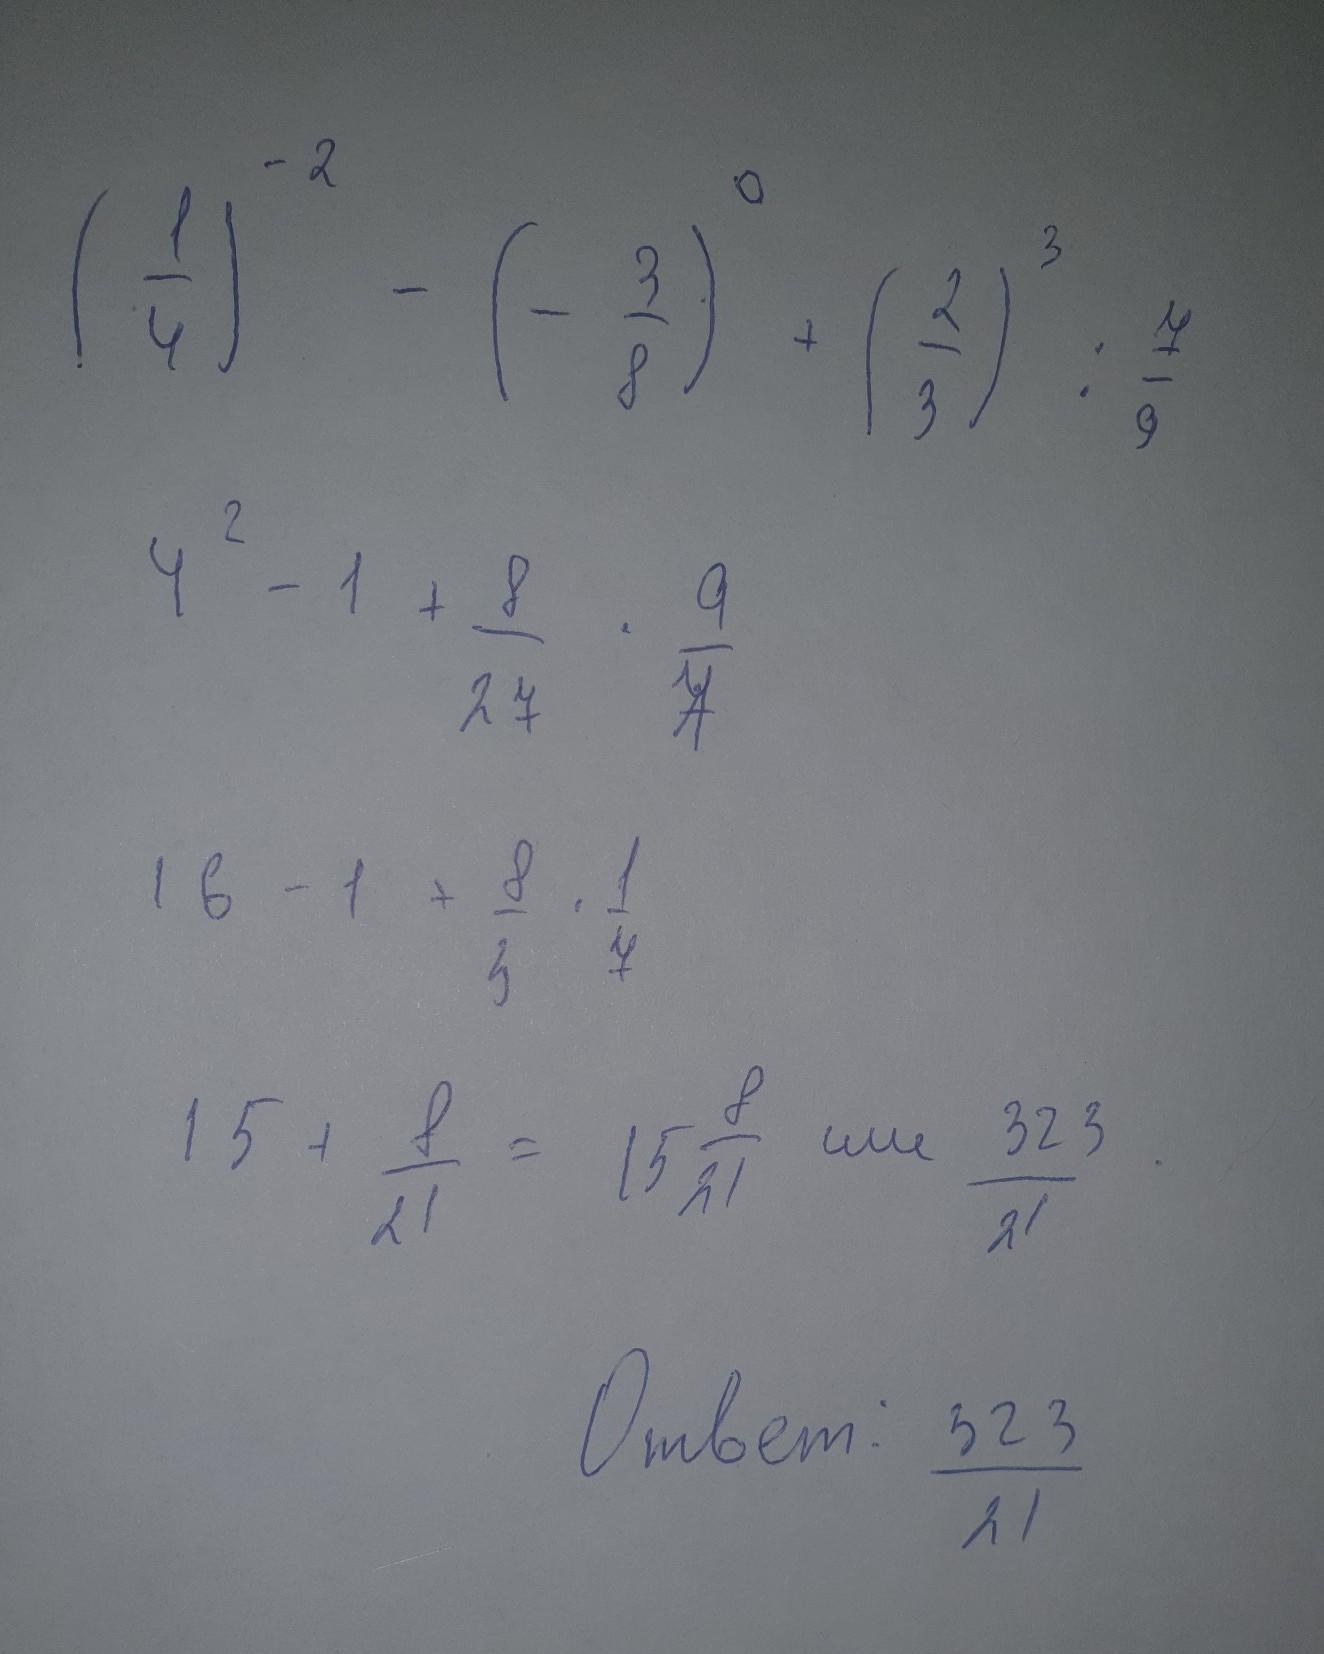 (1/4)^-2 - (-3/8)^0 + (2/3)^3 : 7/9
4^2 - 1 + 8/27 · 9/7
16 - 1 + 8/3 · 1/7
15 + 8/21 = 15 8/21 или 323/21.
Ответ: 323/21